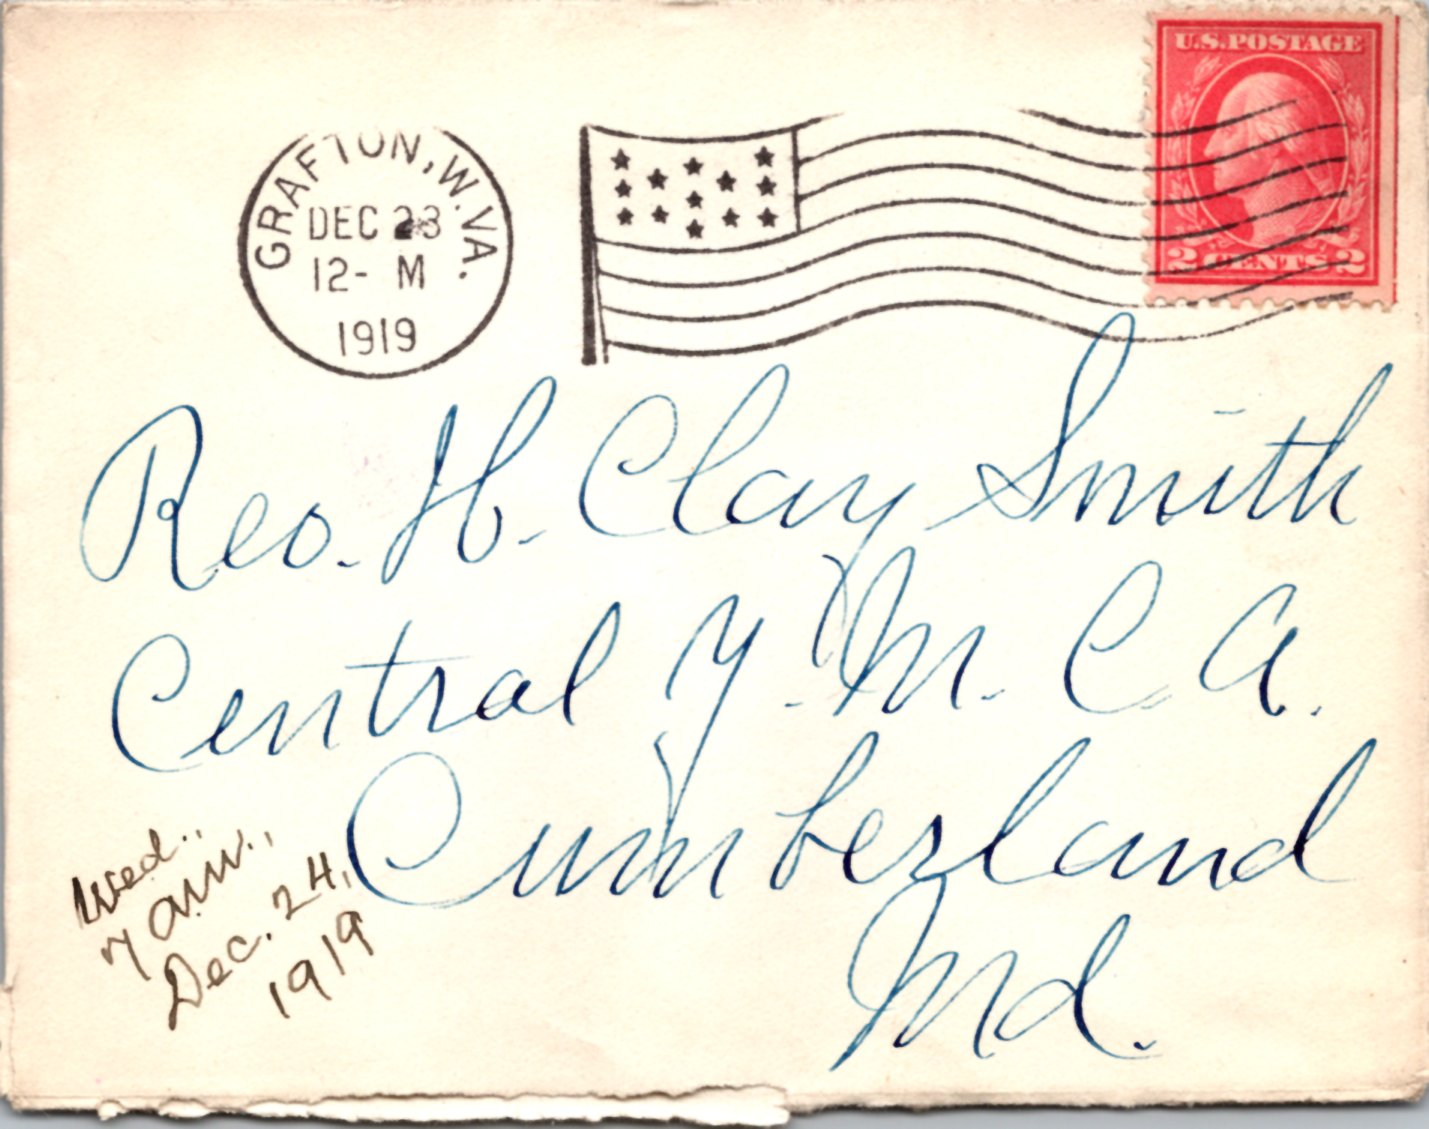 U.S. POSTAGE
2 CENTS 2
GRAFTON, W. VA.
DEC 23
12- M
1919
Rev. H. Clay Smith
Central Y. M. C. A.
Cumberland
Md.
Wed.,
7 a.m.,
Dec. 24,
1919